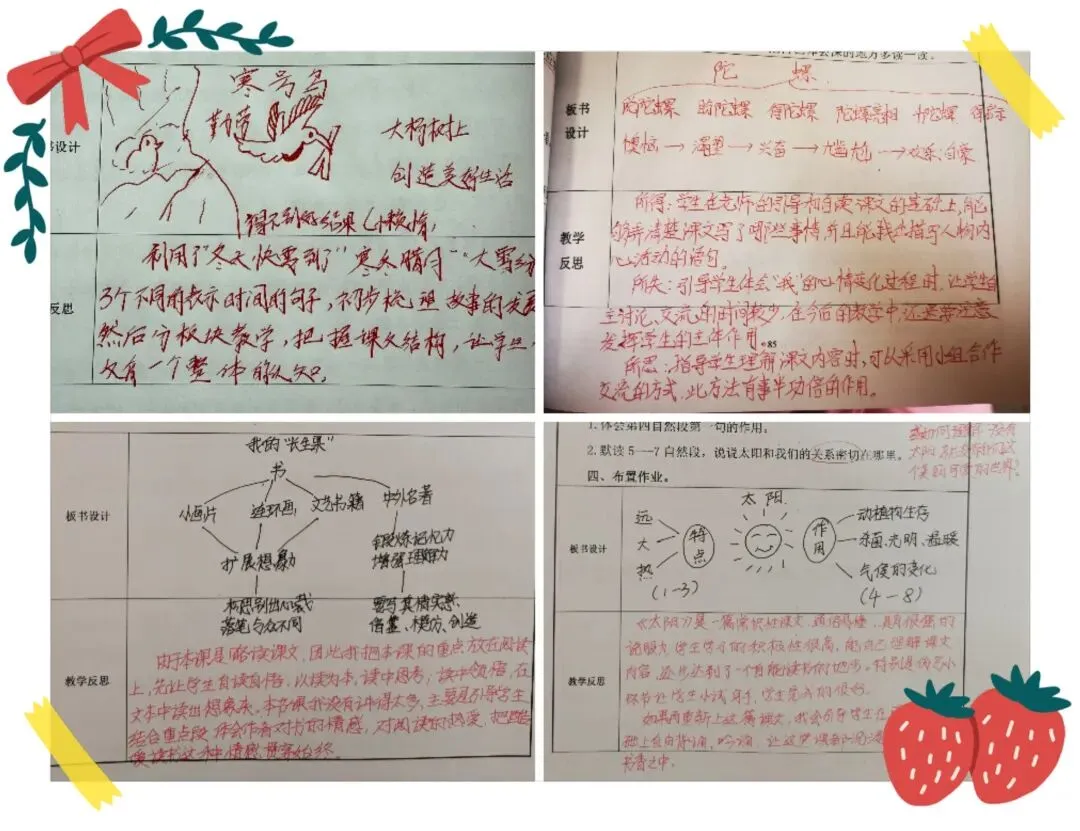 寒号鸟
勤劳
大杨树上
创造美好生活
得不到好结果（懒惰）
利用了"冬天快要到了""寒冬腊月"
3个不同的表示时间的句子，初步梳理故事的发
然后分板块教学，把握课文结构，让学生
文有一个整体的认知。
设计
反思
陀螺
板书
设计
盼陀螺 得陀螺 陀螺亮相
懊恼→渴望→兴奋→尴尬→欢乐、自豪
教学
反思
所得：学生在老师的引导和自读课文的基础上，能
够弄清楚课文写了哪些事情，并且能找出描写人物内
心活动的语句。
所失：引导学生体会"我"的心情变化过程时，让学生自
主讨论、交流的时间较少，在今后的教学中，还是要注意
发挥学生的主体作用。
85
所思：指导学生理解课文内容时，可以采用小组合作
交流的方式，此方法有事半功倍的作用。
我的"长生果"
书
小画片 连环画 文艺书籍 中外名著
板书设计
扩展想象力
锻炼记忆力
增强理解力
构思别出心裁
落笔与众不同
要写真情实感
借鉴、模仿、创造
教学反思
由于本课是略读课文，因此我把本课的重点放在阅读
上，先让学生自读自悟，以读为本，读中思考，读中领悟，在
文本中读出想象来。本节课我没有讲得太多，主要是引导学生
结合重点段体会作者对书的情感，对阅读的热爱，把
读书这种情感贯穿始终。
1.体会第四自然段第一句的作用。
2.默读 5—7 自然段，说说太阳和我们的关系密切在哪里。
四、布置作业。
如何理解"没有
太阳，就没有我们这
个美丽可爱的世界？
板书设计
太阳
远
大
热
特点
(1-3)
作用
动植物生存
杀菌、光明、温暖
气候的变化
(4-8)
教学反思
《太阳》是一篇常识性课文，通俗易懂，具有很强的
说服力，学生学习的积极性很高，能自己理解课文
内容，还
环节让学生小试身手，学生完成的很好。
如果再重新上这篇课文，我会引导学生在
础上自由背诵，吟诵，让这
书香之中。